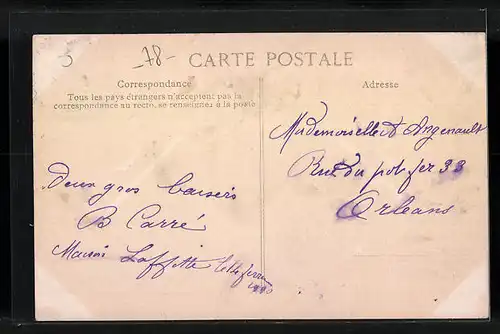 78-
CARTE POSTALE
Correspondance
Tous les pays étrangers n'acceptent pas la
correspondance au recto, se renseigner à la poste
Adresse
Mademoiselle Angenault
Rue du pot fer 33
Orleans
Deux gros baisers
B Carré
Laffitte